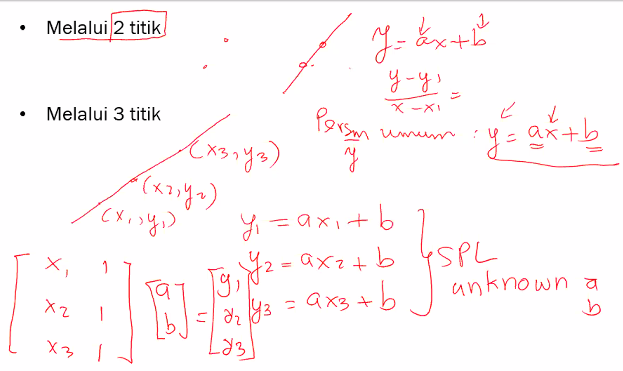 • Melalui 2 titik
y = ax + b
y - y1
x - x1 =
• Melalui 3 titik
Persm umum : y = ax + b
y
(x3, y3)
(x2, y2)
(x1, y1)
y1 = ax1 + b
y2 = ax2 + b
y3 = ax3 + b
SPL
unknown a
b
x1 1
x2 1
x3 1
a
b
=
y1
y2
y3